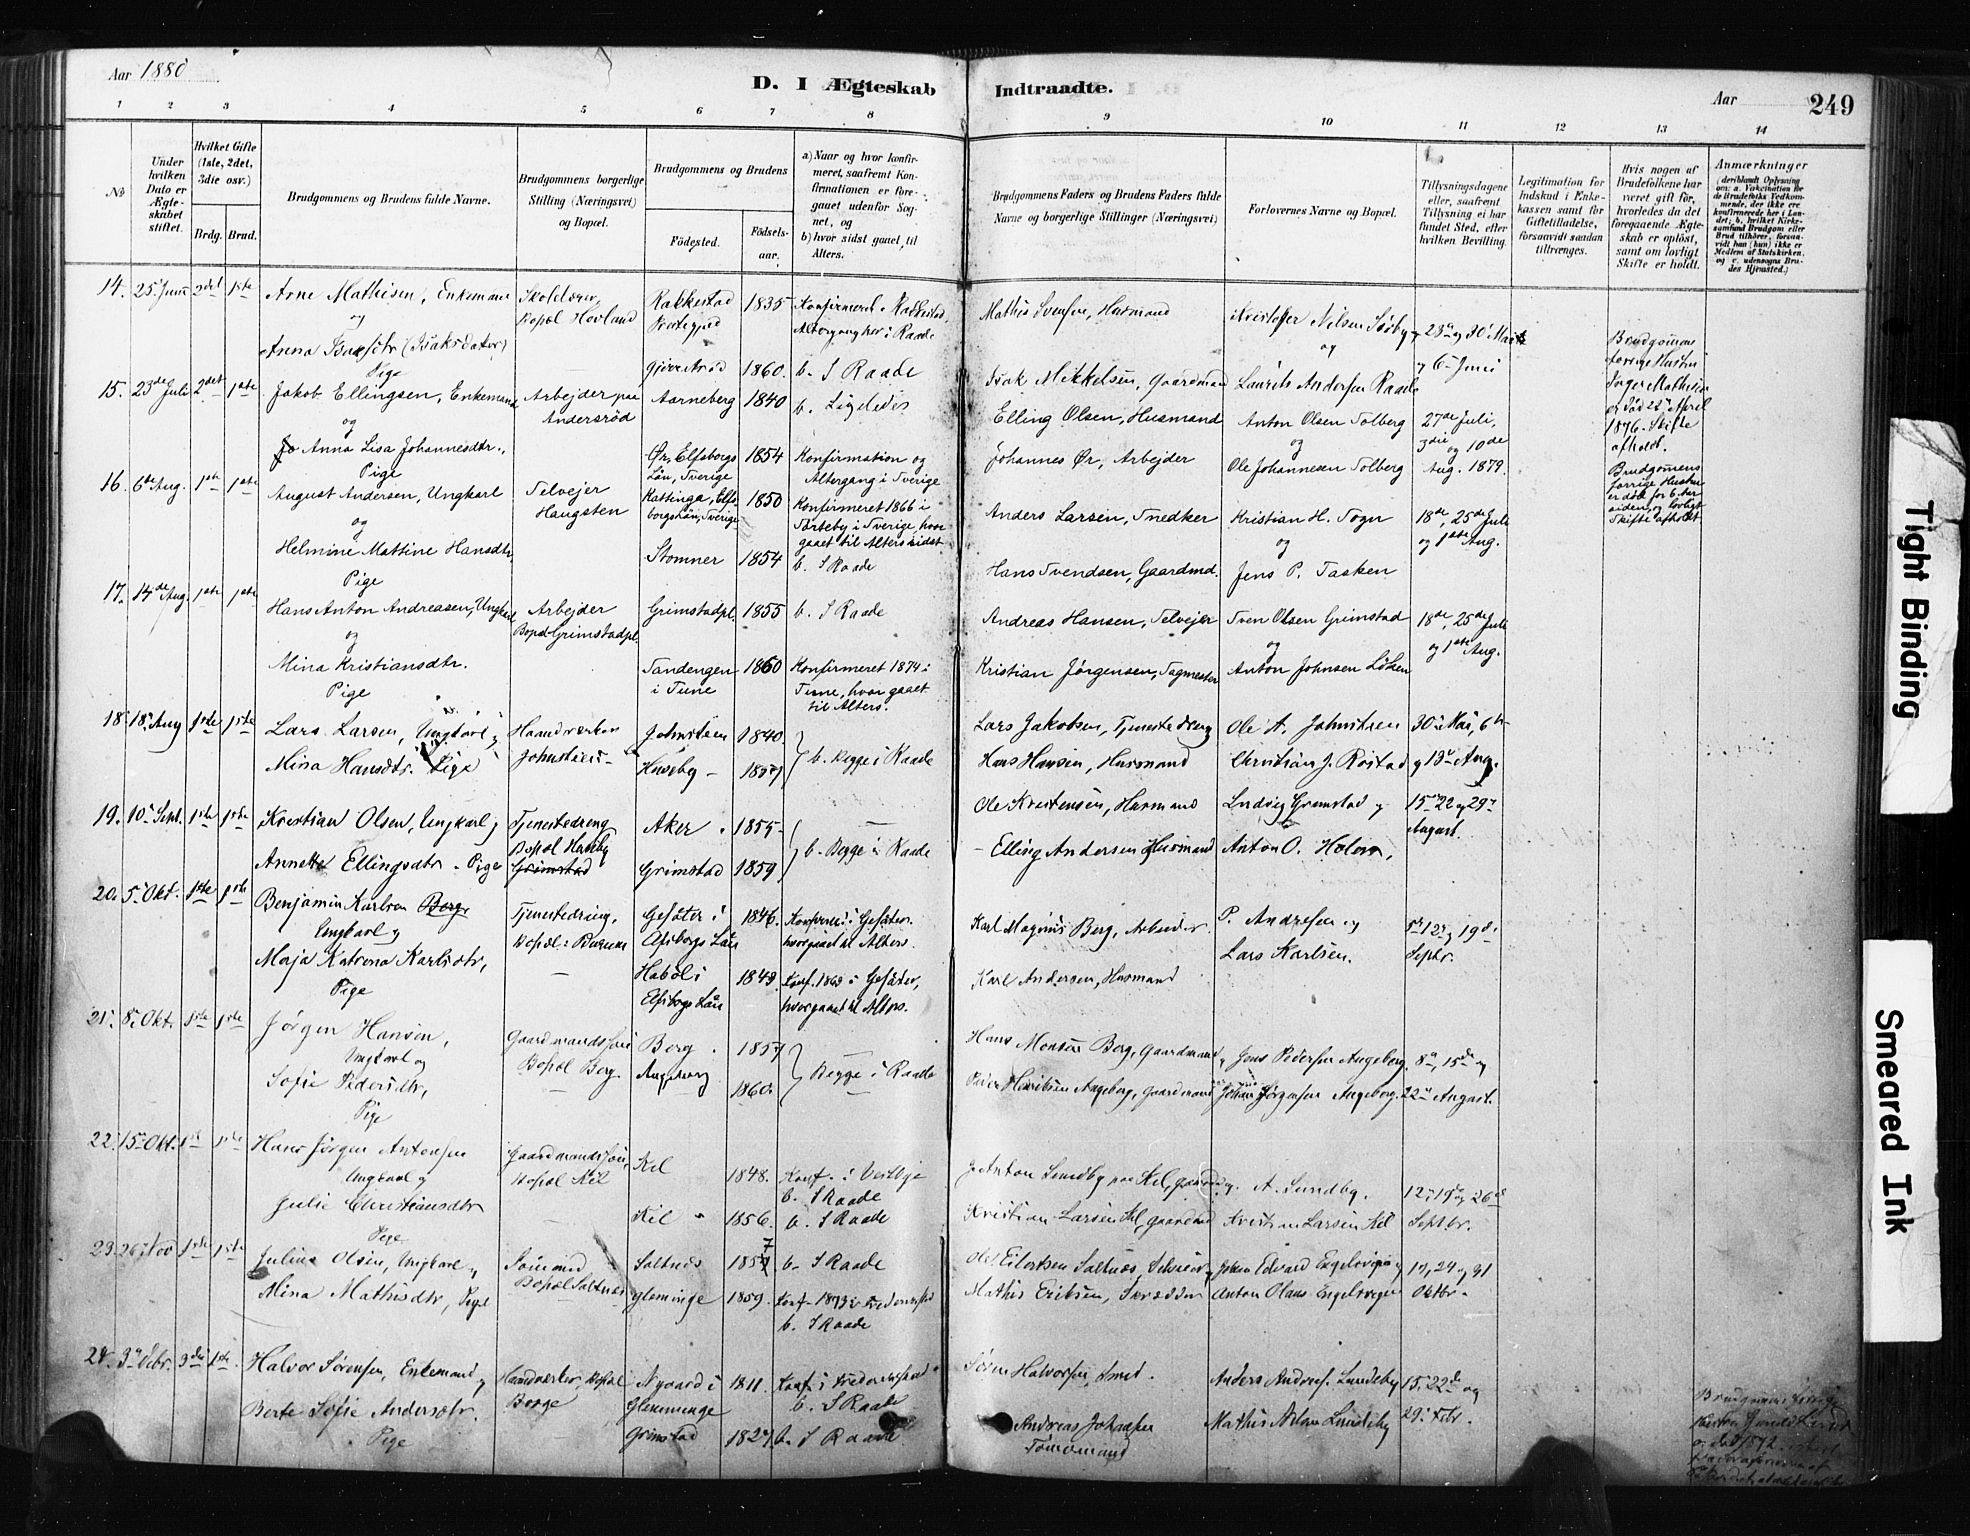 Aar 1880
D. I Ægteskab Indtraadte.
Aar 249
1 2 3 4 5 6 7 8 9 10 11 12 13 14
No
Under hvilken Dato er Ægteskabet stiftet.
Hvilket Gifte (1ste, 2det, 3die osv.)
Brdg. Brud.
Brudgommens og Brudens fulde Navne.
Brudgommens borgerlige Stilling (Næringsvei) og Bopæl.
Brudgommens og Brudens
Fødested. Fødselsaar.
a) Naar og hvor konfirmeret, saafremt Konfirmationen er foregaaet udenfor Sognet, og
b) hvor sidst gaaet til Alters.
Brudgommens Faders og Brudens Faders fulde Navne og borgerlige Stillinger (Næringsvei)
Forlovernes Navne og Bopæl.
Tillysningsdagene eller, saafremt Tillysning ei har fundet Sted, efter hvilken Bevilling.
Legitimation for Indskud i Enkekassen samt for Giftetilladelse, forsaavidt saadan tiltrænges.
Hvis nogen af Brudefolkene har været gift før, hvorledes da det foregaaende Ægteskab er opløst, samt om lovligt Skifte er holdt.
Anmærkninger (deriblandt Oplysning om: a. Vakcination for de Brudefolks Vedkommende, der ikke ere konfirmerede her i Landet; b. hvilket Kirkesamfund Brudgom eller Brud tilhører, forsaavidt han (hun) ikke er Medlem af Statskirken, og c. udensogns Brudes Hjemsted.)
14. 25 Juni 2det 1ste Arne Mathisen, Enkemand Skolelærer, Rakkestad 1835 Konfirmeret i Rakkestad, Mathis Svensen, Husmand Kristoffer Nilsen 23de og 30 Mai
og Bopæl Hovland Altergang her i Raade og og 6te Juni
Anna Isaksdtr (Isaksdatter) 1860. b. I Raade Isak Mikkelsen, Gaardmand Laurits Andersen Raade
Pige
Brudgommens forrige Hustru
Inger Mathisen er død 22de April
1876. Skifte afholdt.
15. 23de Juli 2det 1ste Jakob Ellingsen, Enkemand Arbejder paa Aarneberg 1840 b. Ligeledes Elling Olsen, Husmand Anton Olsen Tolberg 27de Juli,
og Andersrød og 3die og 10de
Anna Lisa Johannesdtr., Ør, Elfsborgs 1854 Konfirmation og Johannes Ør, Arbejder Ole Johannesen Tolberg Aug. 1879.
Pige Län, Sverige Altergang i Sverige
Brudgommens forrige Hustru
er død for 6 Aar
siden, og lovligt
Skifte afholdt
16. 6te Aug. 1ste 1ste August Andersen, Ungkarl Selvejer Kattinga, Elfs- 1850 Konfirmeret 1866 i Anders Larsen, Snedker Kristian H. Sogn 18de, 25de Juli
og Haugsten borgslän, Sverige Sverige, hvor og og 1ste Aug.
gaaet til Alters sidst
Helmine Mattine Hansdtr, Stomner 1854 b. I Raade Hans Svendsen, Gaardmd. Jens P. Tasken
Pige
17. 14de Aug. 1ste 1ste Hans Anton Andreasen, Ungkarl Arbejder Grimstadpl. 1855 b. I Raade Andreas Hansen, Selvejer Sven Olsen Grimstad 18de, 25de Juli
og Bopæl Grimstadpl. og og 1ste Aug.
Mina Kristiansdtr. Sandengen 1860 Konfirmeret 1874 i Kristian Jørgensen, Sagmester Anton Johnsen Løken
Pige i Tune Tune, hvor gaaet
til Alters.
18. 18 Aug 1ste 1ste Lars Larsen, Ungkarl og Haandværker Johnstien 1840. Lars Jakobsen, Tjenestedreng Ole A. Johnstien 30 Mai, 6te
Mina Hansdtr. Pige Johnstien Huseby 1857 b. Begge i Raade Hans Hansen, Husmand Christian J. Røstad og 13de Aug.
19. 10 Sept. 1ste 1ste Kristian Olsen, Ungkarl og Tjenestedreng Aker 1855 Ole Kristensen, Husmand Ludvig Grimstad og 15 22 og 29
Bopæl August.
Annette Ellingsdtr. Pige Grimstad Grimstad 1859 b. Begge i Raade Elling Andersen Husmand Anton O. Holm,
20. 5 Okt. 1ste 1ste Benjamin Karlsen Berg. Tjenestedreng, Gesäter i 1846. Konfirmed i Gesäter. Karl Magnus Berg, Arbeider P. Andresen og 5te 12te og 19de
Ungkarl og Bopæl: Elfsborgs Län hvor gaaet til Alters. Lars Karlsen. Septbr.
Maja Katrina Karlsdtr, Habol i 1843. Konf. 1863 i Gesäter, Karl Andersen, Husmand
Pige Elfsborgs Län hvor gaaet til Alters.
21. 8 Okt. 1ste 1ste Jørgen Hansen, Gaardmandssøn Berg 1857 Hans Monsen Berg, Gaardmand Jens Pedersen Augeberg 8de, 15de og
Ungkarl og Bopæl Berg. Augeberg Begge i Raade
Sofie Pedersdtr, 1860. Peder Henriksen Augeberg, Gaardmand Johan Jørgensen Augeberg. 22de August.
Pige
22. 15 Okt. 1ste 1ste Hans Jørgen Antonsen Gaardmandssøn, Kil 1848. Konf. i Vestby Anton Sundby paa Kil, Gaardmd A. Sundby. 12, 19 og 26de
Ungkarl og Bopæl Kil b. I Raade
Julie Christiansdtr Kil 1856. b. I Raade Kristian Larsen Kil, Gaardmd Kristian Larsen Kil Septbr.
Pige
23. 26 Nov 1ste 1ste Julius Olsen, Ungkarl og Sømand Saltnes 1857 b. I Raade Ole Eilertsen Saltnes, Selveier Johan Edvard Engelsvigen og 17, 24 og 31
Mina Mathisdtr, Pige Bopæl Saltnes Gleminge 1859. Konf. 1873 i Fredriksstad Mathis Eriksen, Skrædder Anton Olaus Engelsvigen Oktbr.
b. I Raade
24. 3 Debr. 3die 1ste Halvor Sørensen, Enkemand og Haandverker, Bopæl Nygaard i 1811. Konf. i Fredriksstad Søren Halvorsen, Smed. Anders Andres. Lundeby 15, 22de og
Berge Glemminge b. I Raade 29. Febr.
Berte Sofie Andersdtr. Grimstad 1827. b. I Raade Andreas Johansen Mathis Nilsen Lundeby
Pige Tømmermand
Tight Binding
Smeared Ink